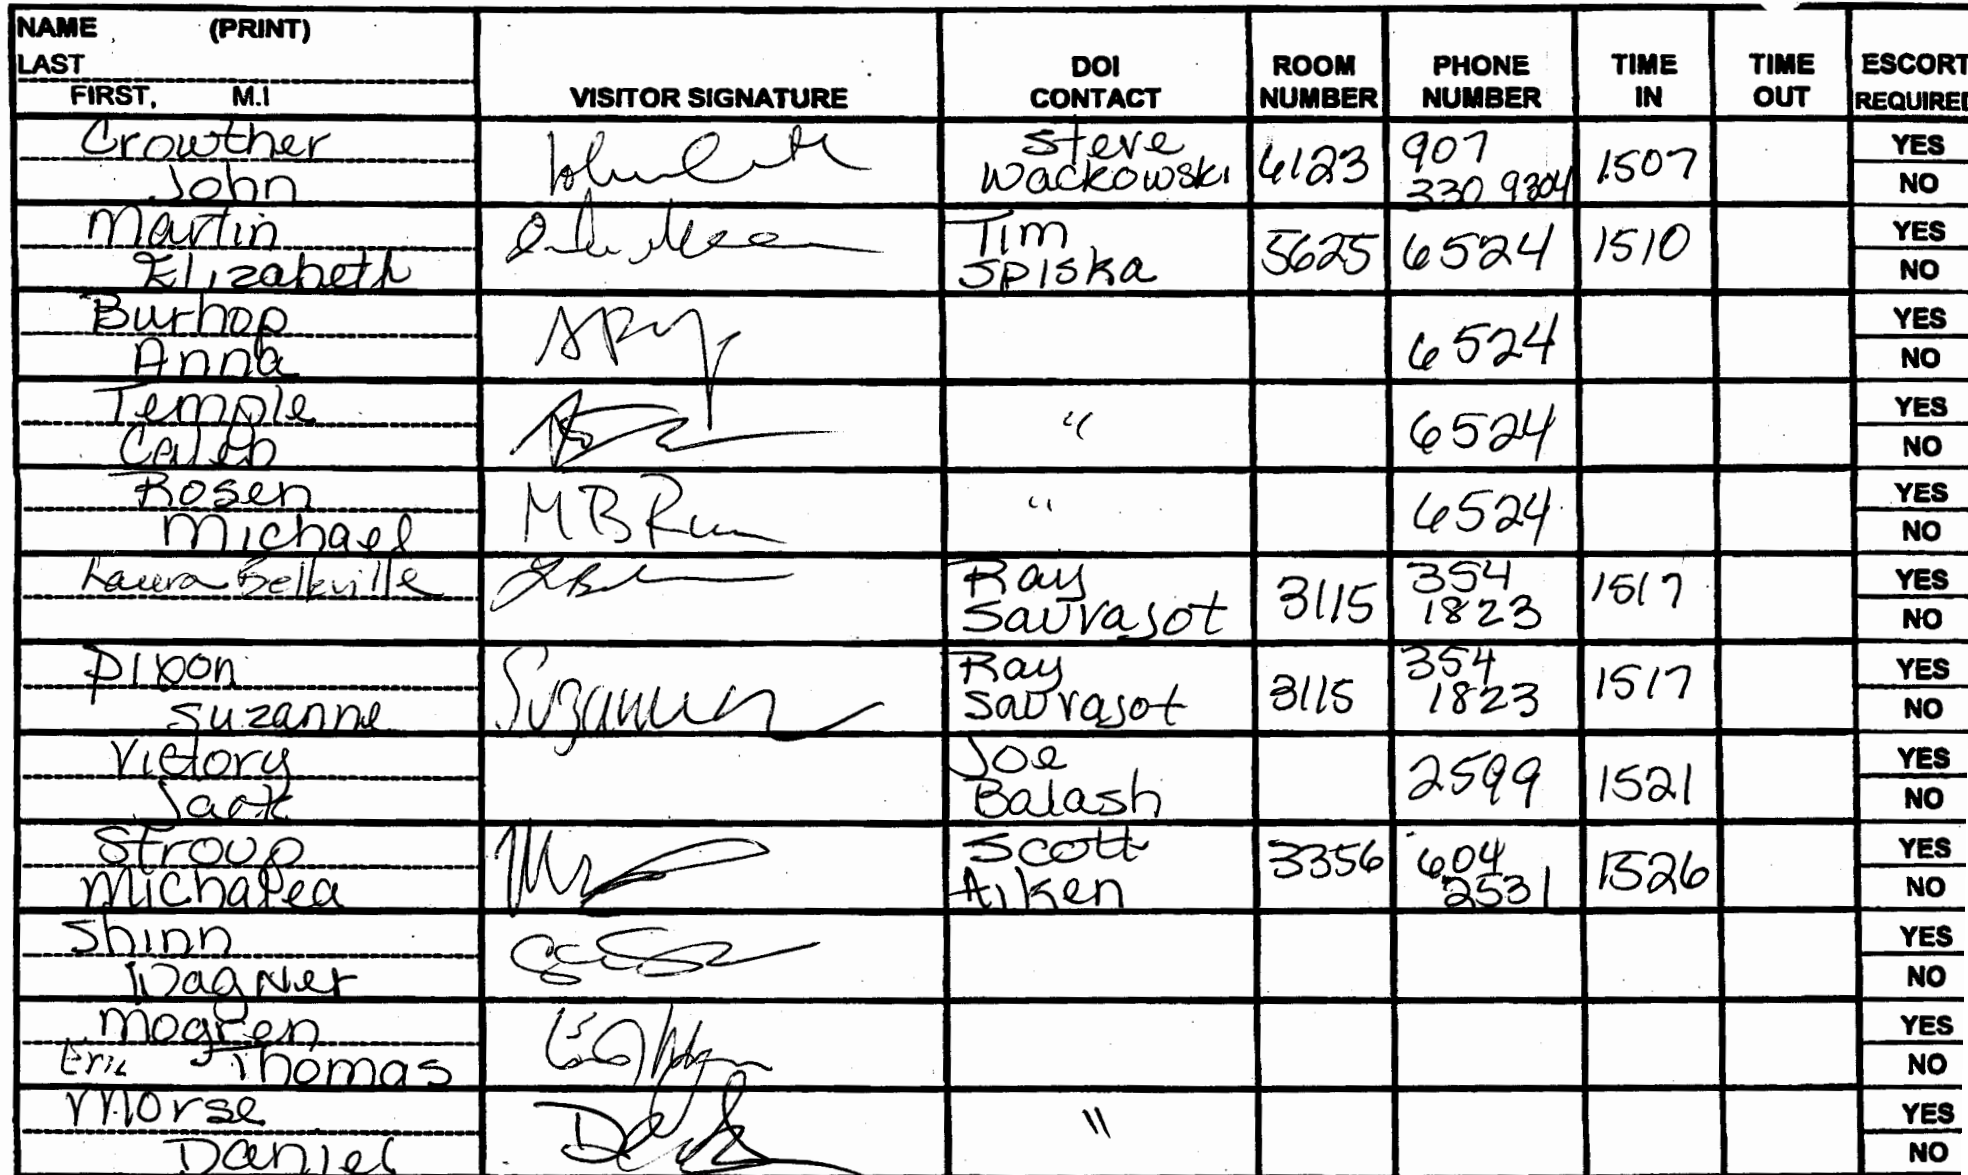 NAME (PRINT)
LAST
FIRST, M.I
VISITOR SIGNATURE
DOI
CONTACT
ROOM
NUMBER
PHONE
NUMBER
TIME
IN
TIME
OUT
ESCORT
REQUIRED
Crowther
John
Steve
Wackowski
6123
907
330 9304
1507
YES
NO
Martin
Elizabeth
Tim
Spiska
5625
6524
1510
YES
NO
Burhop
Anna
6524
YES
NO
Temple
Caleb
"
6524
YES
NO
Rosen
Michael
"
6524
YES
NO
Laura Belleville
Ray
Sauvajot
3115
354
1823
1517
YES
NO
Dixon
Suzanne
Ray
Sauvajot
3115
354
1823
1517
YES
NO
Victory
Jack
Joe
Balash
2599
1521
YES
NO
Stroup
Michalea
Scott
Aiken
3356
604
2531
1526
YES
NO
Shinn
Wagner
YES
NO
Mogren
Eric Thomas
YES
NO
Morse
Daniel
"
YES
NO